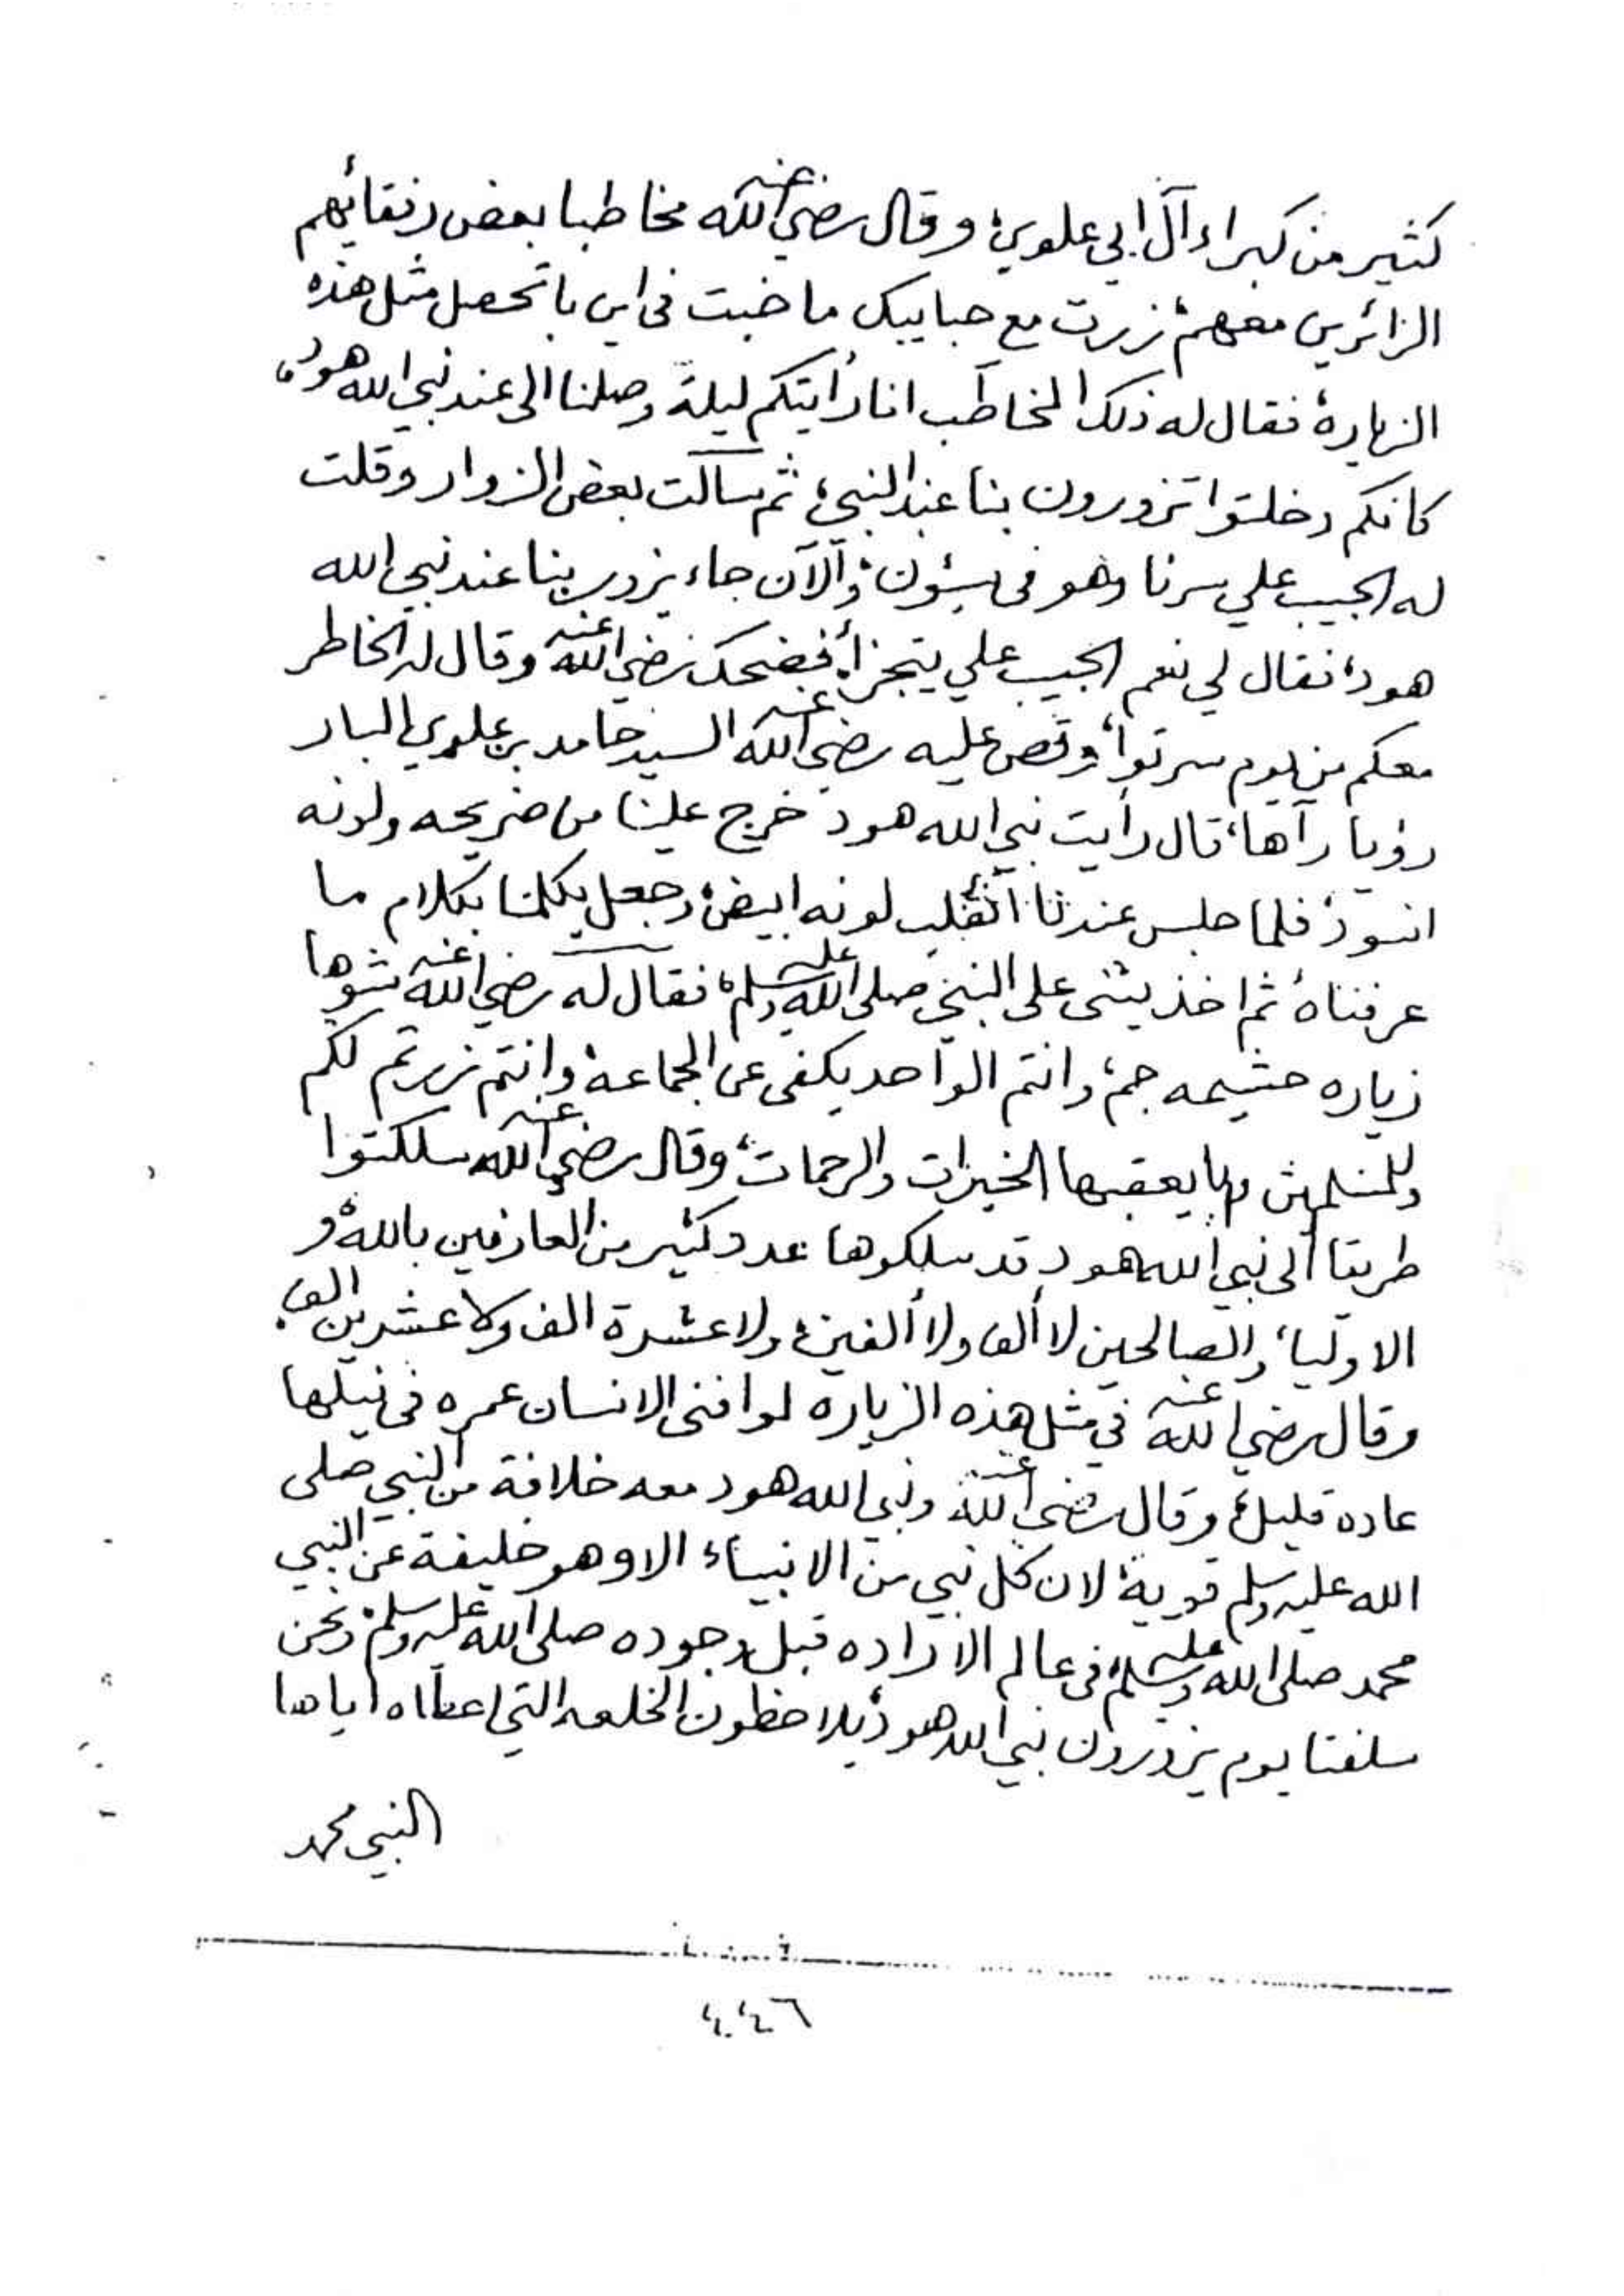 كثير من كبراء آل ابي علوي، وقال رضي الله عنه مخاطبا بعض رفقائهم
الزائرين معهم، زرت مع حبايبك ما خبت في اين با تحصل مثل هذه
الزيارة، فقال له ذلك المخاطب انا رأيتكم ليلة وصلنا الى عند نبي الله هود،
كانكم دخلتوا تزورون بنا عند النبي، ثم سألت بعض الزوار وقلت
له الحبيب علي سرنا وهو في سيؤن، والآن جاء يزور بنا عند نبي الله
هود، فقال لي نعم الحبيب علي يتجزأ، فضحك رضي الله عنه وقال له الخاطر
معكم من يوم سرتوا، وقص عليه رضي الله عنه السيد حامد بن علوي البار
رؤيا رآها، قال رأيت نبي الله هود خرج علينا من ضريحه ولونه
اسود، فلما جلس عندنا انقلب لونه ابيض، وجعل يكلمنا بكلام ما
عرفناه، ثم اخذ يثني على النبي صلى الله عليه وسلم، فقال له رضي الله عنه شوها
زياره حشيمه جم، وانتم الواحد يكفي عن الجماعة، وانتم زرتم لكم
وللمسلمين وبا يعقبها الخيرات والرحمات، وقال رضي الله عنه سلكتوا
طريقا الى نبي الله هود قد سلكوها عدد كثير من العارفين بالله، و
الاولياء والصالحين لا ألف ولا ألفين، ولا عشرة الف ولا عشرين الف،
وقال رضي الله عنه في مثل هذه الزياره لو افنى الانسان عمره في نيلها
عاده قليل، وقال رضي الله عنه ونبي الله هود معه خلافة من النبي صلى
الله عليه وسلم قوية، لان كل نبي من الانبياء الا وهو خليفة عن النبي
محمد صلى الله عليه وسلم، في عالم الاراده قبل وجوده صلى الله عليه وسلم، ونحن
سلفنا يوم يزورون نبي الله هود، يلاحظون الخلعه التي اعطاه اياها
النبي محمد